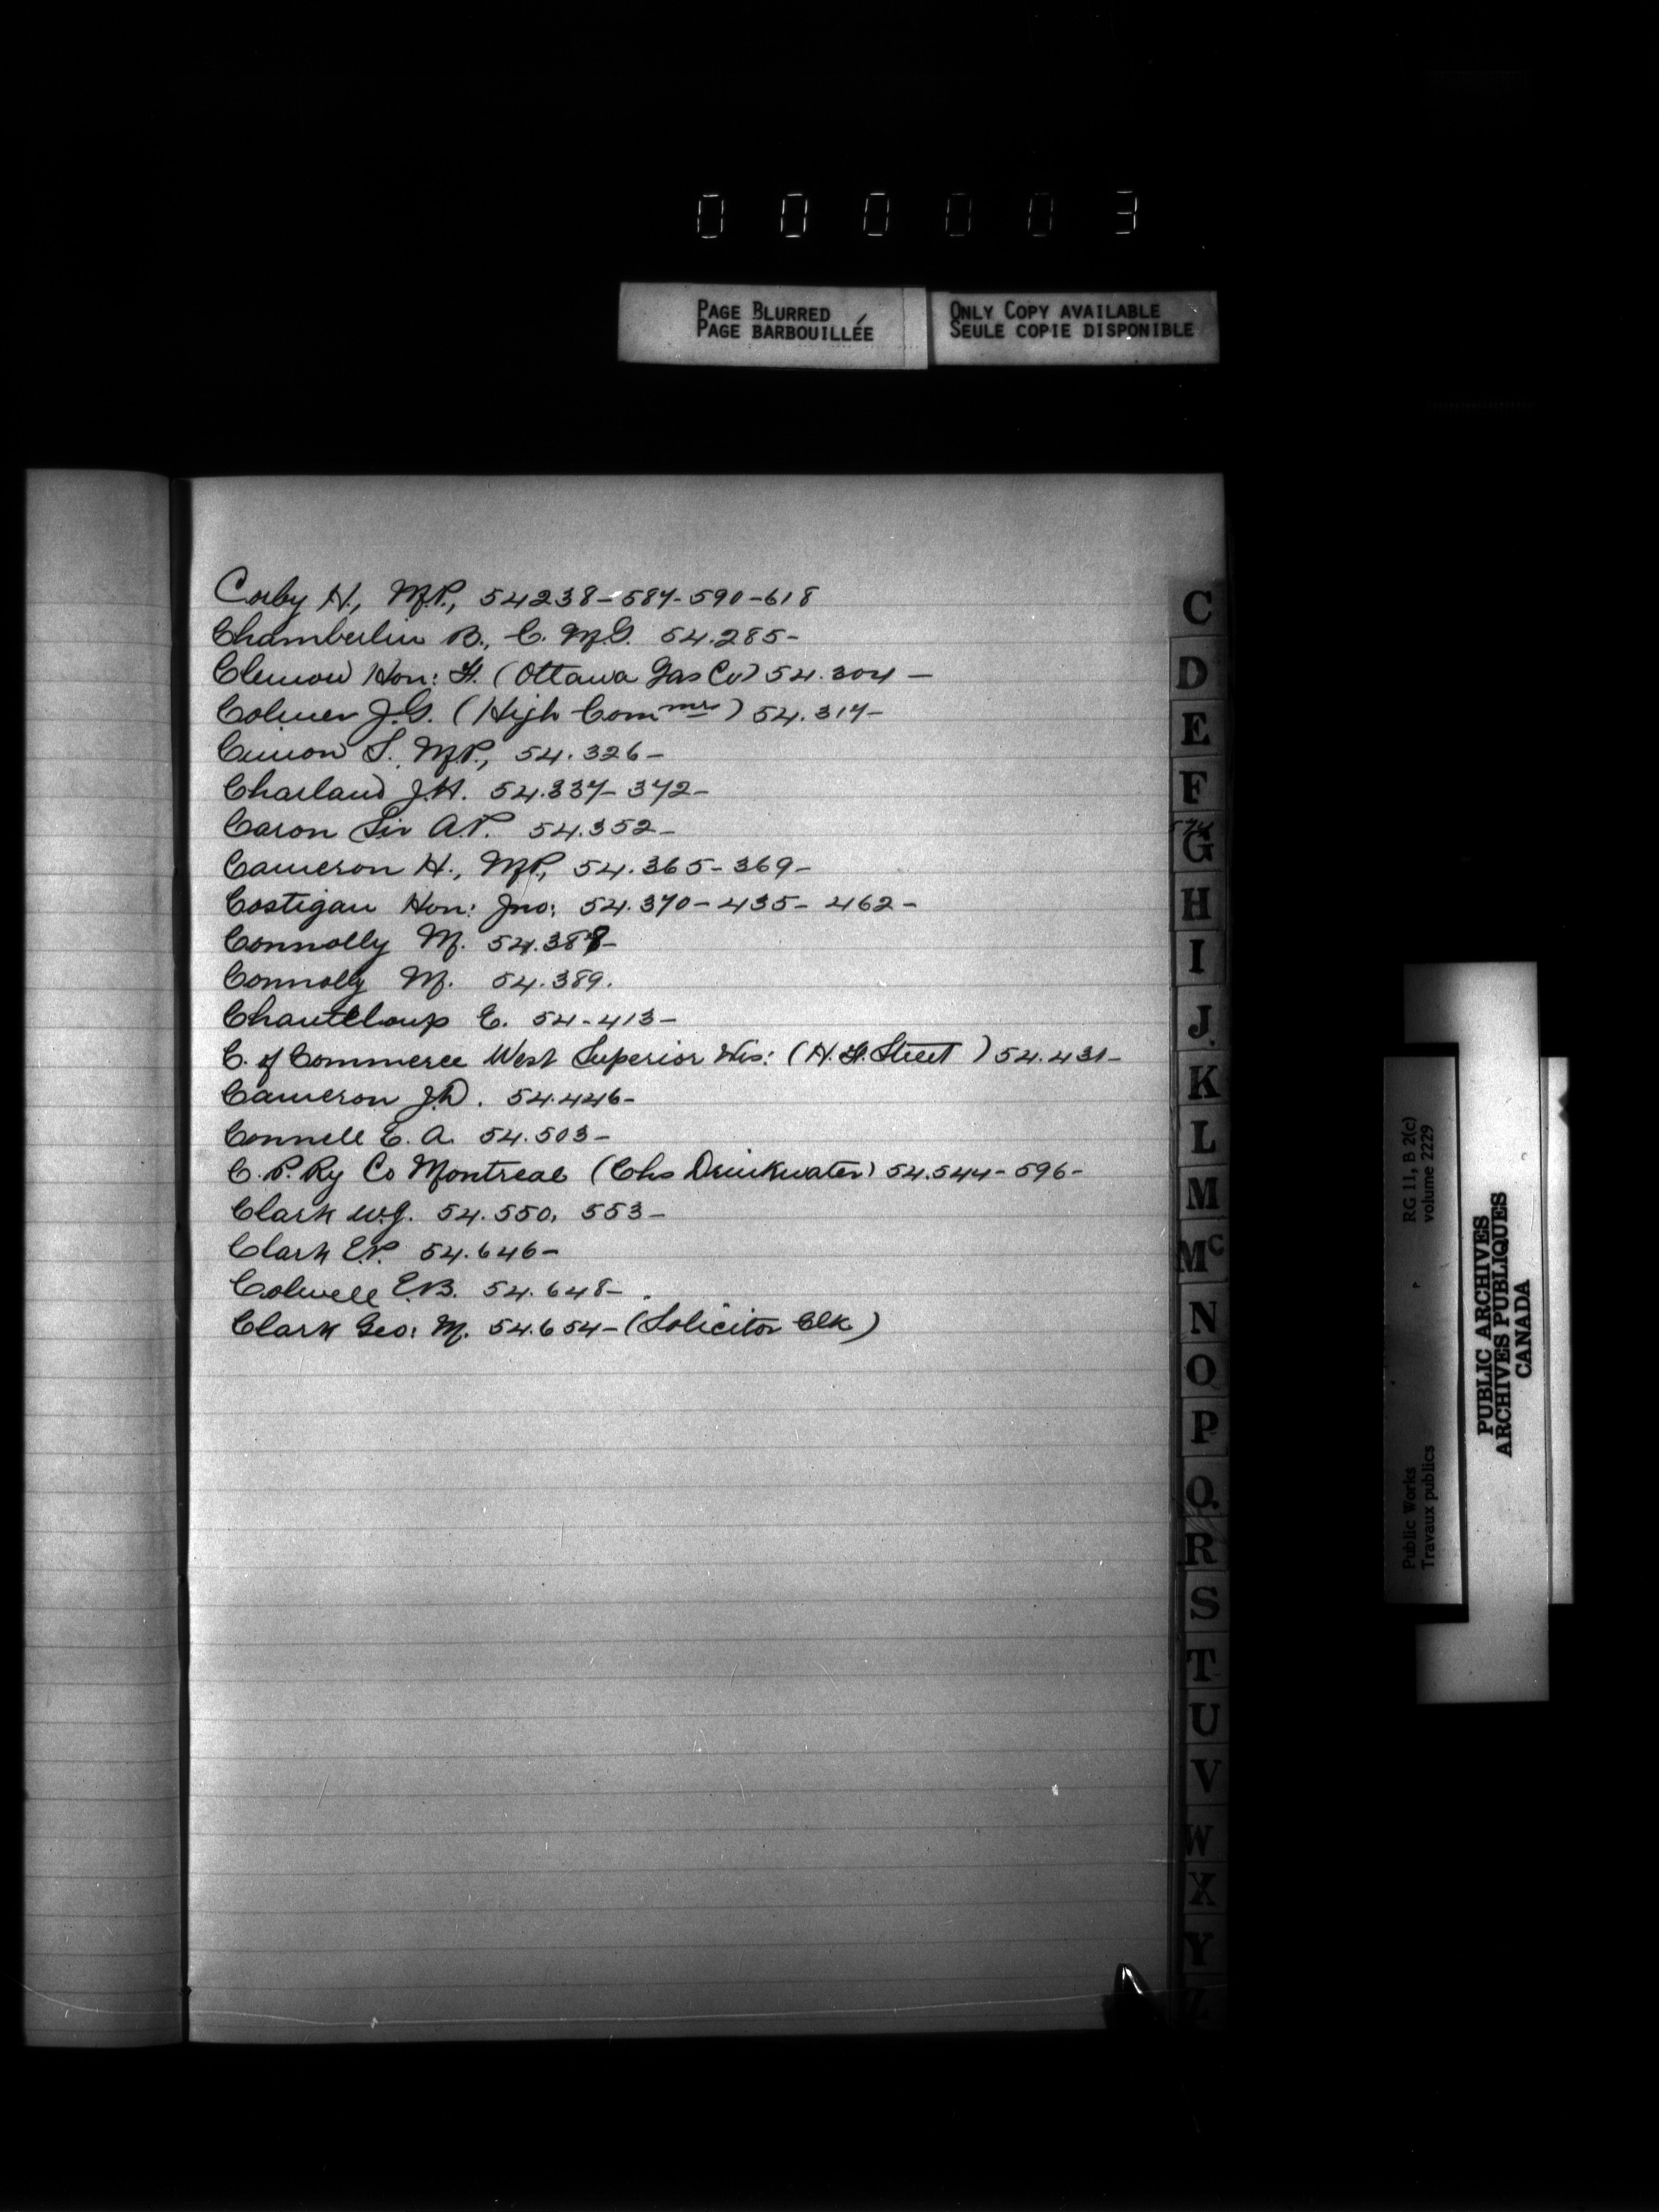 000003
PAGE BLURRED
PAGE BARBOUILLÉE
ONLY COPY AVAILABLE
SEULE COPIE DISPONIBLE
Corby H., M.P., 54238-587-590-618
Chamberlin B., C.M.G. 54.285-
Clemow Hon: F. (Ottawa Gas Co) 54.304-
Colmer J.G. (High Commr) 54.317-
Cimon S. M.P., 54.326-
Charland J.H. 54.337-372-
Caron Sir A.P. 54.352-
Cameron H., M.P., 54.365-369-
Costigan Hon: Jno: 54.370-435-462-
Connolly M. 54.388-
Connolly M. 54.389.
Chanteloup E. 54-413-
C. of Commerce West Superior Wis: (H. F. Street) 54.431-
Cameron J.D. 54.446-
Connell E. A. 54.503-
C. P. Ry Co Montreal (Chs Drinkwater) 54.544-596-
Clark W.J. 54.550, 553-
Clark E.P. 54.646-
Colwell E.B. 54.648-
Clark Geo: M. 54.654-(Solicitor Clk)
C
D
E
F
G
H
I
J.
K
L
M
Mc
N
O
P
Q.
R
S
T
U
V
W
X
Y
Z
RG 11, B 2(c)
volume 2229
Public Works
Travaux publics
PUBLIC ARCHIVES
ARCHIVES PUBLIQUES
CANADA